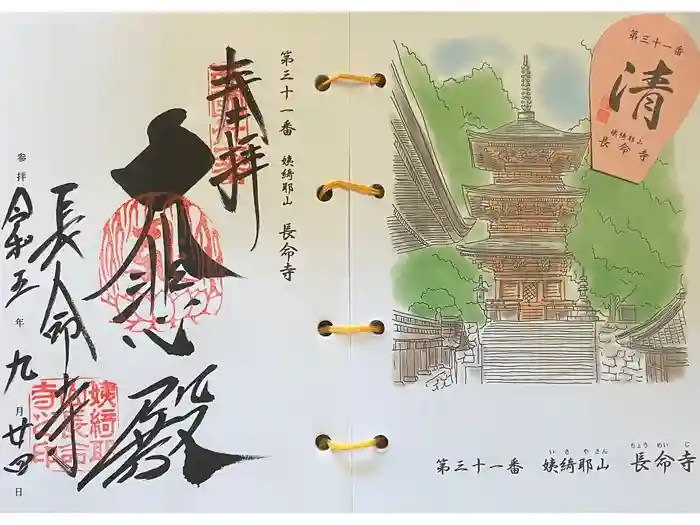 第三十一番 姨綺耶山 長命寺
奉拝
大悲殿
長命寺
参拝 令和五年九月廿四日
姨綺耶
寺之印
第三十一番
清
姨綺耶山
長命寺
いきやさん ちょうめいじ
第三十一番 姨綺耶山 長命寺